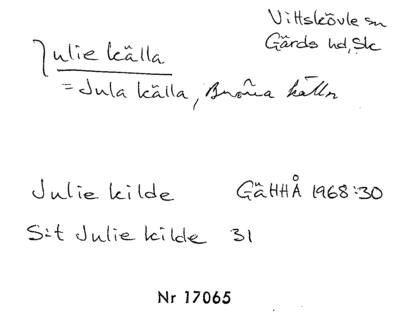 Vittskövle sn
Gärds hd, Sk
Julie källa
= Jula källa, källa
Julie kilde GäHHÅ 1968:30
S:t Julie kilde 31
Nr 17065